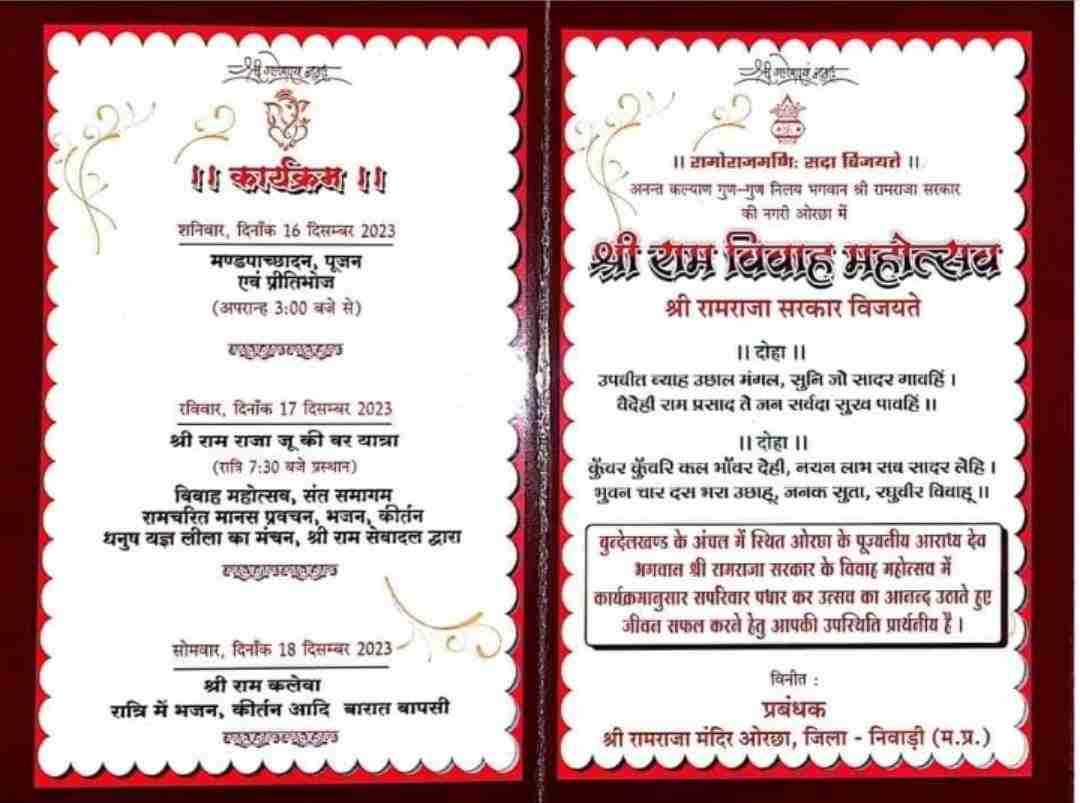 श्री गणेशाय नमः
।। कार्यक्रम ।।
शनिवार, दिनाँक 16 दिसम्बर 2023
मण्डपाच्छादन, पूजन
एवं प्रीतिभोज
(अपरान्ह 3:00 बजे से)
रविवार, दिनाँक 17 दिसम्बर 2023
श्री राम राजा जू की वर यात्रा
(रात्रि 7:30 बजे प्रस्थान)
विवाह महोत्सव, संत समागम
रामचरित मानस प्रवचन, भजन, कीर्तन
धनुष यज्ञ लीला का मंचन, श्री राम सेवादल द्वारा
सोमवार, दिनाँक 18 दिसम्बर 2023
श्री राम कलेवा
रात्रि में भजन, कीर्तन आदि बारात वापसी
श्री गणेशाय नमः
।। रामोराजमणिः सदा विजयते ।।
अनन्त कल्याण गुण-गुण निलय भगवान श्री रामराजा सरकार
की नगरी ओरछा में
श्री राम विवाह महोत्सव
श्री रामराजा सरकार विजयते
।। दोहा ।।
उपवीत ब्याह उछाल मंगल, सुनि जो सादर गावहिं ।
वैदेही राम प्रसाद ते जन सर्वदा सुख पावहिं ।।
।। दोहा ।।
कुँवर कुँवरि कल भाँवर देही, नयन लाभ सब सादर लेहि ।
भुवन चार दस भरा उछाहू, जनक सुता, रघुवीर विवाहू ।।
बुन्देलखण्ड के अंचल में स्थित ओरछा के पूज्यनीय आराध्य देव
भगवान श्री रामराजा सरकार के विवाह महोत्सव में
कार्यक्रमानुसार सपरिवार पधार कर उत्सव का आनन्द उठाते हुए
जीवन सफल करने हेतु आपकी उपस्थिति प्रार्थनीय है ।
विनीत :
प्रबंधक
श्री रामराजा मंदिर ओरछा, जिला - निवाड़ी (म.प्र.)